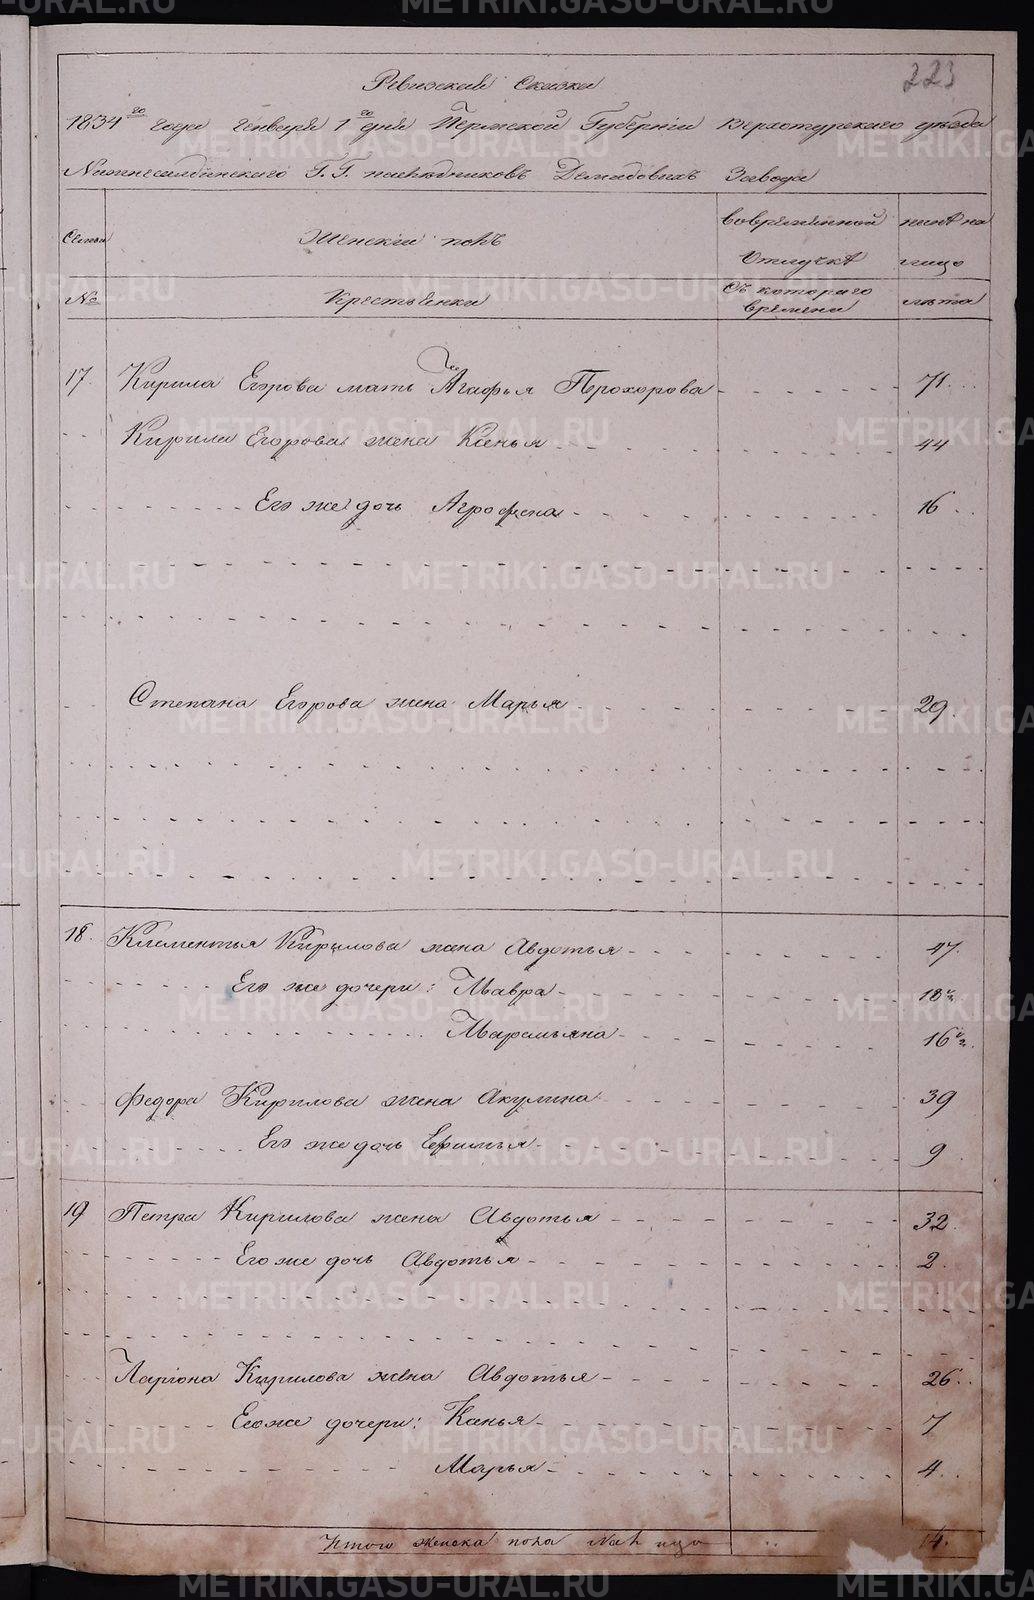 223
Ревизская Сказка
1834го года генваря 1го дня Пермской Губернiи Верхотурскаго уезда
Нижнесалдинскаго Г.Г. наследниковъ Демидовыхъ Завода
Семьи
Женскiй полъ
во временной
отлучке
ныне на
лицо
№
Крестьянки
Съ котораго
времени
лета
17. Кирила Егорова мать Агафья Прохорова 71
Кирила Егорова жена Ксенья 44
Его же дочь Агрофена 16
Степана Егорова жена Марья 29.
18. Климентья Кирилова жена Авдотья 47.
Его же дочери: Мавра 18 ½
Маремьяна 16 ½
Федора Кирилова жена Акулина 39
Его же дочь Ефимья 9
19 Петра Кирилова жена Авдотья 32.
Его же дочь Авдотья 2.
Ларiона Кирилова жена Авдотья 26.
Его же дочери: Ксенья 7
Марья 4.
Итого женска пола на лицо 14.
METRIKI.GASO-URAL.RU